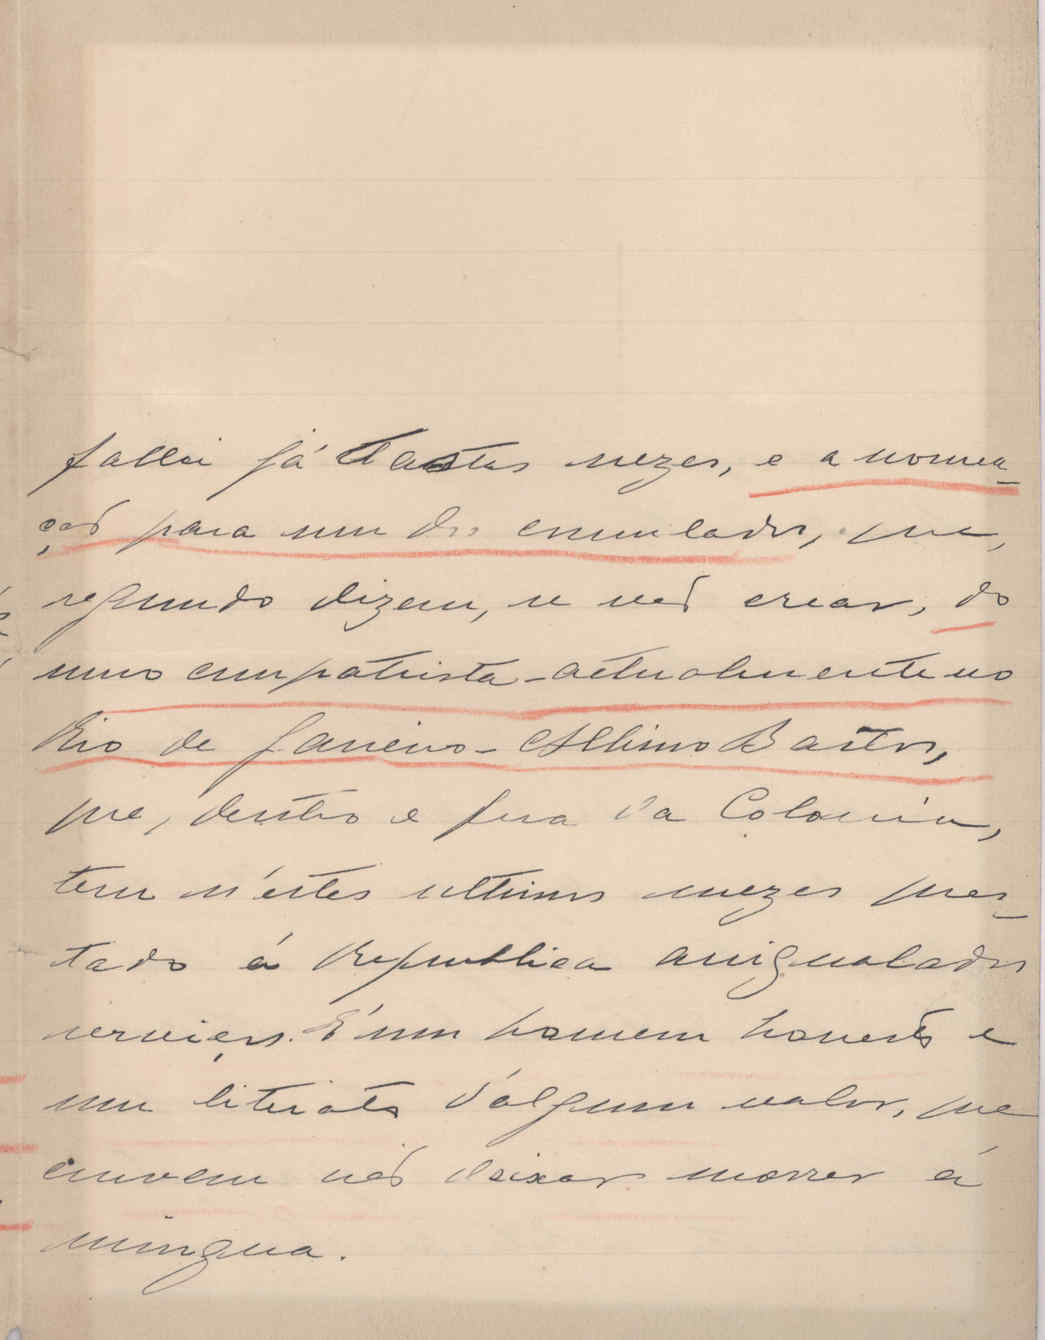 fallei já tantos mezes, e a nomea-
ção para um dos consulados, que,
segundo dizem, se vão crear, do
nosso compatriota - actualmente no
Rio de Janeiro - Albino Bastos,
que, dentro e fora da Colonia,
tem n'estes ultimos mezes pres-
tado á Republica anigualados
serviços. É um homem honesto e
um literato d'algum valor, que
convem não deixar morrer á
mingua.